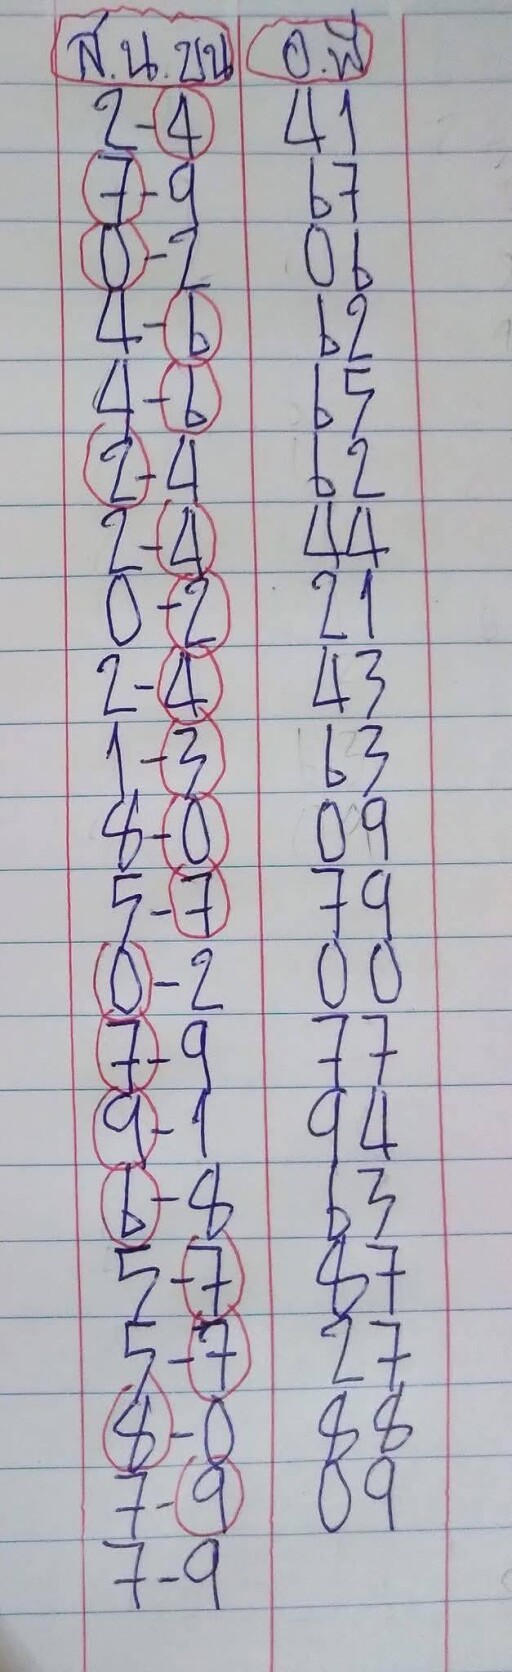 ส.น.ชน อ.พี่
2-4 41
7-9 67
0-2 06
4-6 62
4-6 65
2-4 62
2-4 44
0-2 21
2-4 43
1-3 63
8-0 09
5-7 79
0-2 00
7-9 77
9-1 94
6-8 63
5-7 87
5-7 27
8-0 88
7-9 09
7-9